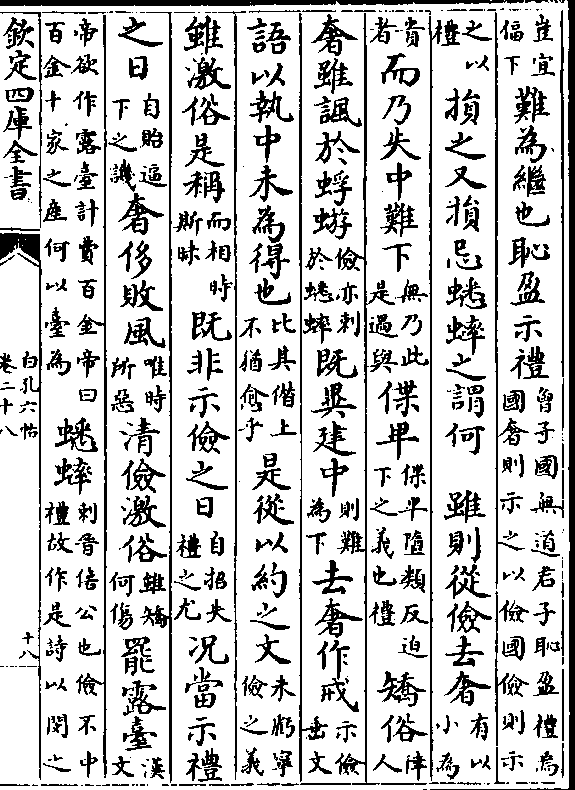 豈宜偪下難為繼也恥盈示禮曾子國無道君子恥盈禮焉國奢則示之以儉國儉則示
之以禮損之又損忌蟋蟀之謂何 雖則從儉去奢有以小為
貴者而乃失中難下無乃此是過與偞卑偞卑隨類反迫下之義也禮矯俗人
奢雖諷於蜉蝣儉亦刺於蟋蟀既異建中則難為下去奢作戒示儉垂文
語以執中未為得也比其僭上不猶愈乎是從以約之文未爽寧儉之義
雖激俗是稱而相時斯昧既非示儉之日自招失禮之尤况當示禮
之日自貽逼下之譏奢侈敗風唯時所惡清儉激俗雖矯何傷罷露臺漢文
帝欲作露臺計費百金帝曰百金十家之産何以臺為蟋蟀刺晉僖公也儉不中禮故作是詩以閔之
欽定四庫全書
白孔六帖
卷二十八
十八